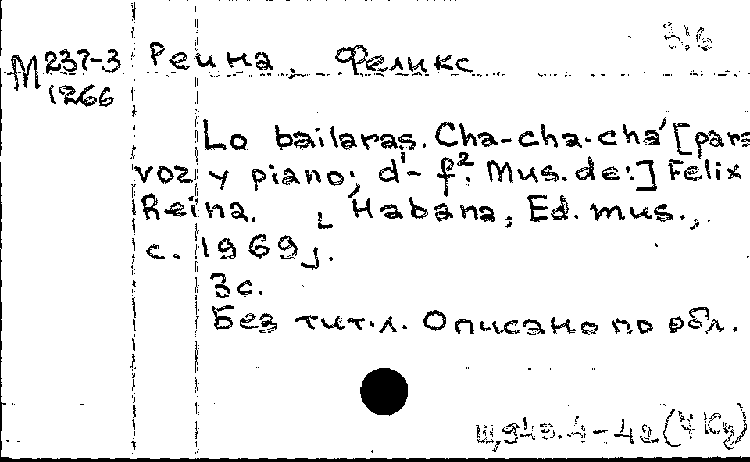 316
М 237-3 Реина, Феликс
1266
Lo bailaras. Cha-cha-cha [para
voz y piano; d¹- f². Mus. de:] Felix
Reina. [Habana, Ed. mus.,
c. 1969].
3 с.
Без тит. л. Описано по обл.
Щ943.4-42(7Ку)